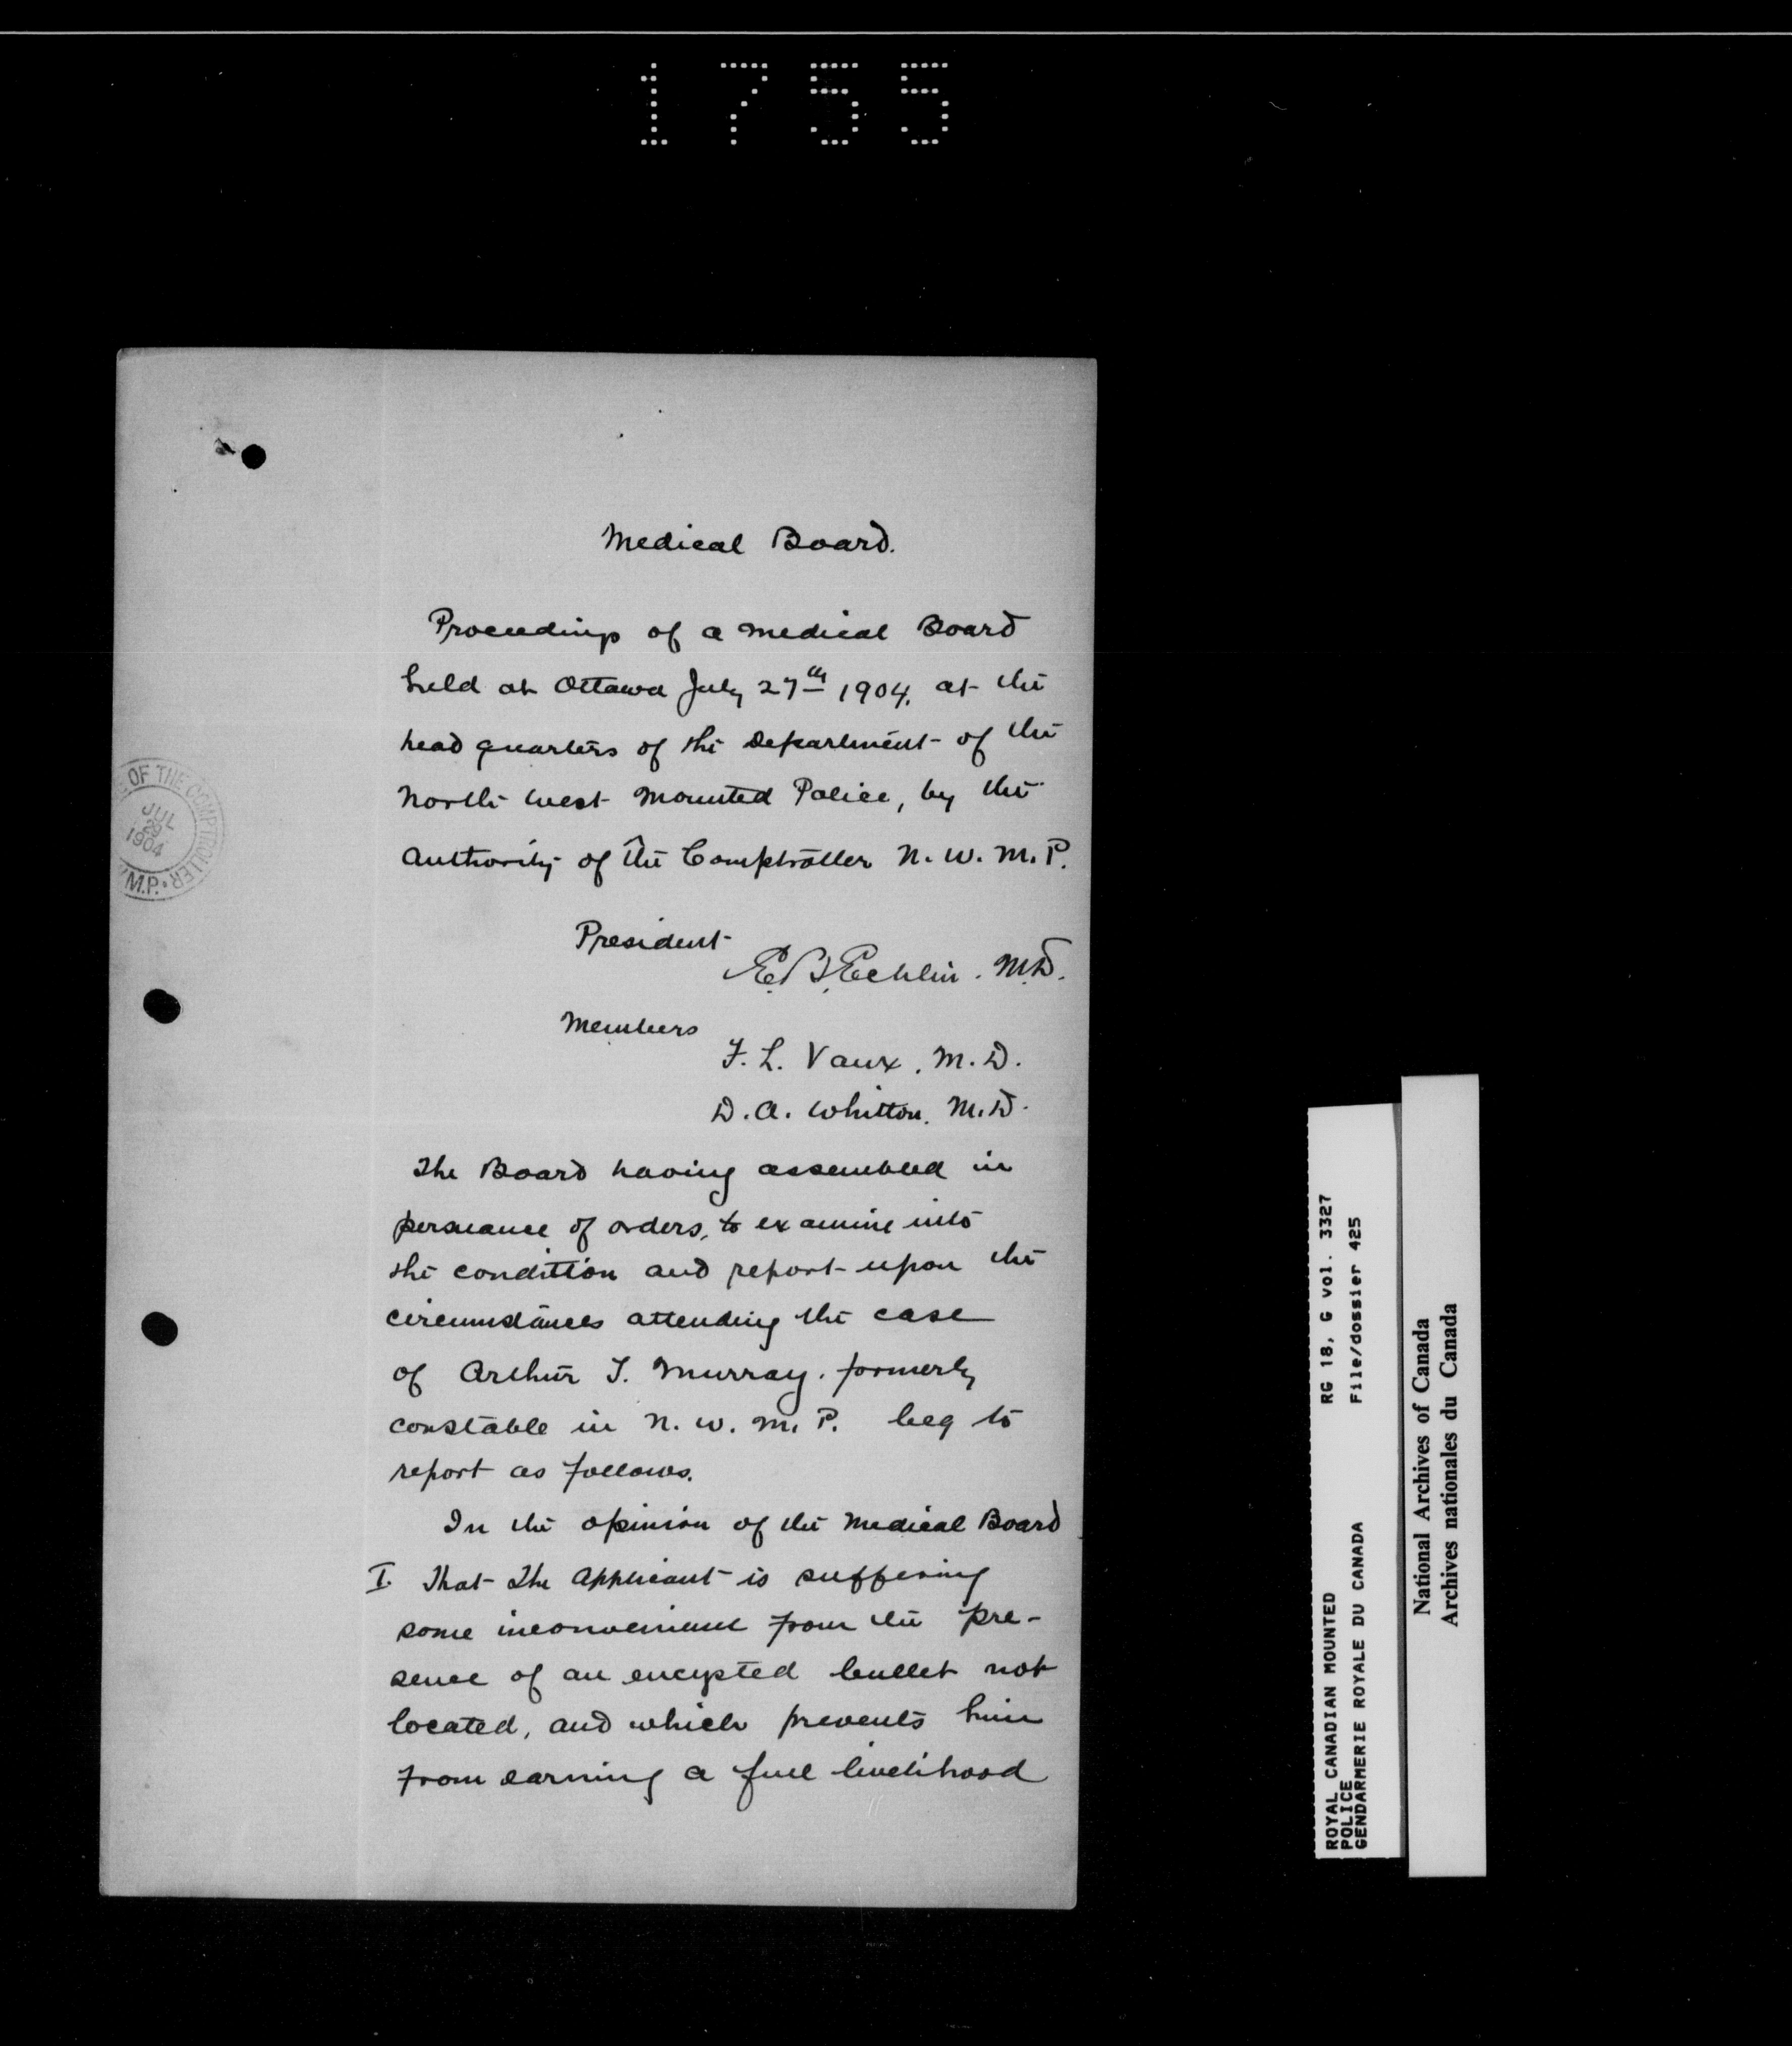 1755
Medical Board.
Proceedings of a medical Board
held at Ottawa July 27th 1904, at the
head quarters of the Department of the
North West Mounted Police, by the
Authority of the Comptroller N. W. M. P.
President
E. B. Echlin. M.D.
Members
F. L. Vaux. M. D.
D. A. Whitton. M. D.
The Board having assembled in
persuance of orders, to examine into
the condition and report upon the
circumstances attending the case
of Arthur J. Murray. formerly
constable in N. W. M. P. beg to
report as follows.
In the opinion of the Medical Board
I. That the Applicant is suffering
some inconvenience from the pre-
sence of an encysted bullet not
located, and which prevents him
from earning a full livelihood
OF THE COMPTROLLER
JUL
29
1904
M.P.
ROYAL CANADIAN MOUNTED
POLICE
GENDARMERIE ROYALE DU CANADA
RG 18, G vol. 3327
File/dossier 425
National Archives of Canada
Archives nationales du Canada